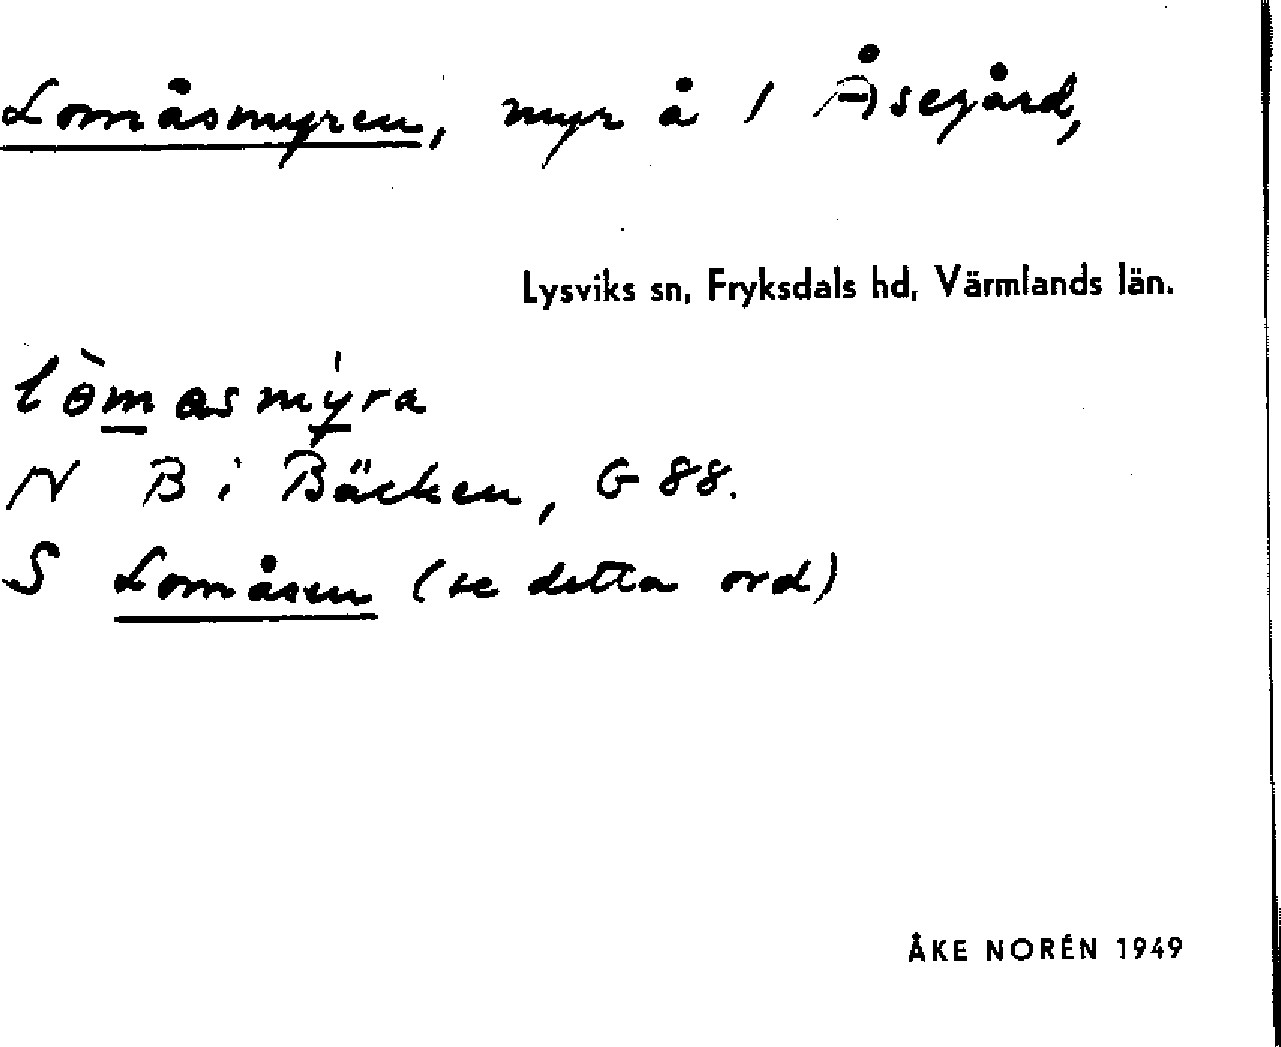 Lomåsmyren, myr å 1 Åsegård,
Lysviks sn, Fryksdals hd, Värmlands län.
lòmasmýra
N B i Bäcken, G 88.
S Lomåsen (se detta ord)
ÅKE NORÉN 1949